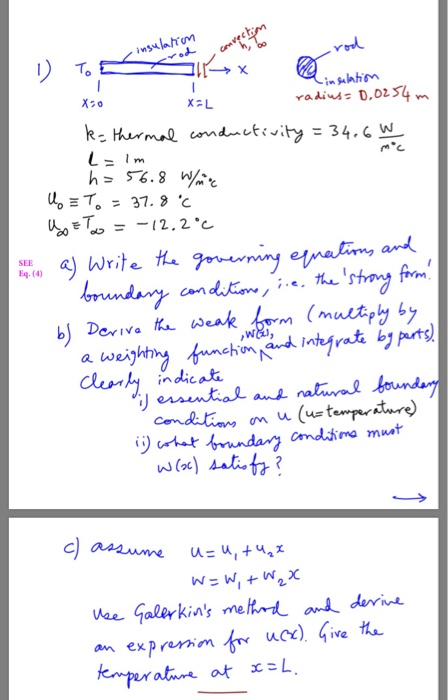 insulation
rod
convection
h, T∞
rod
1) T₀
→ x
insulation
x=0
x=L
radius = 0.0254 m
k = thermal conductivity = 34.6 W/m°C
L = 1m
h = 56.8 W/m²°C
u₀ ≡ T₀ = 37.8 °C
u∞ ≡ T∞ = -12.2°C
SEE
Eq. (4)
a) Write the governing equations and
boundary conditions, i.e. the 'strong form'.
b) Derive the weak form (multiply by
a weighting function, w(x), and integrate by parts).
Clearly indicate
i) essential and natural boundary
conditions on u (u=temperature)
ii) what boundary conditions must
w(x) satisfy?
→
c) assume u = u₁ + u₂x
w = w₁ + w₂x
Use Galerkin's method and derive
an expression for u(x). Give the
temperature at x=L.